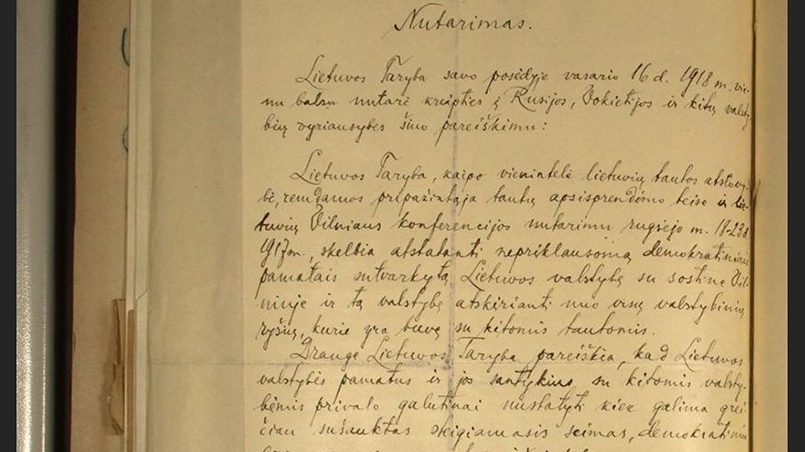 Nutarimas.
Lietuvos Taryba savo posėdyje vasario 16 d. 1918 m. vie-
nu balsu nutarė kreipties į Rusijos, Vokietijos ir kitų valsty-
bių vyriausybes šiuo pareiškimu:
Lietuvos Taryba, kaipo vienintelė lietuvių tautos atstovy-
bė, remdamos pripažintąja tautų apsisprendimo teise ir lie-
tuvių Vilniaus konferencijos nutarimu rugsėjo m. 18-23 d.
1917 m., skelbia atstatanti nepriklausomą demokratiniais
pamatais sutvarkytą Lietuvos valstybę su sostine Vil-
niuje ir tą valstybę atskirianti nuo visų valstybinių
ryšių, kurie yra buvę su kitomis tautomis.
Drauge Lietuvos Taryba pareiškia, kad Lietuvos
valstybės pamatus ir jos santykius su kitomis valsty-
bėmis privalo galutinai nustatyti kiek galima grei-
čiau sušauktas steigiamasis seimas, demokratiniu